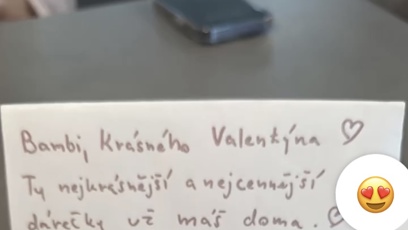 Bambi, Krásného Valentýna ♡
Ty nejkrásnější a nejcennější
dárečky už máš doma. ♡